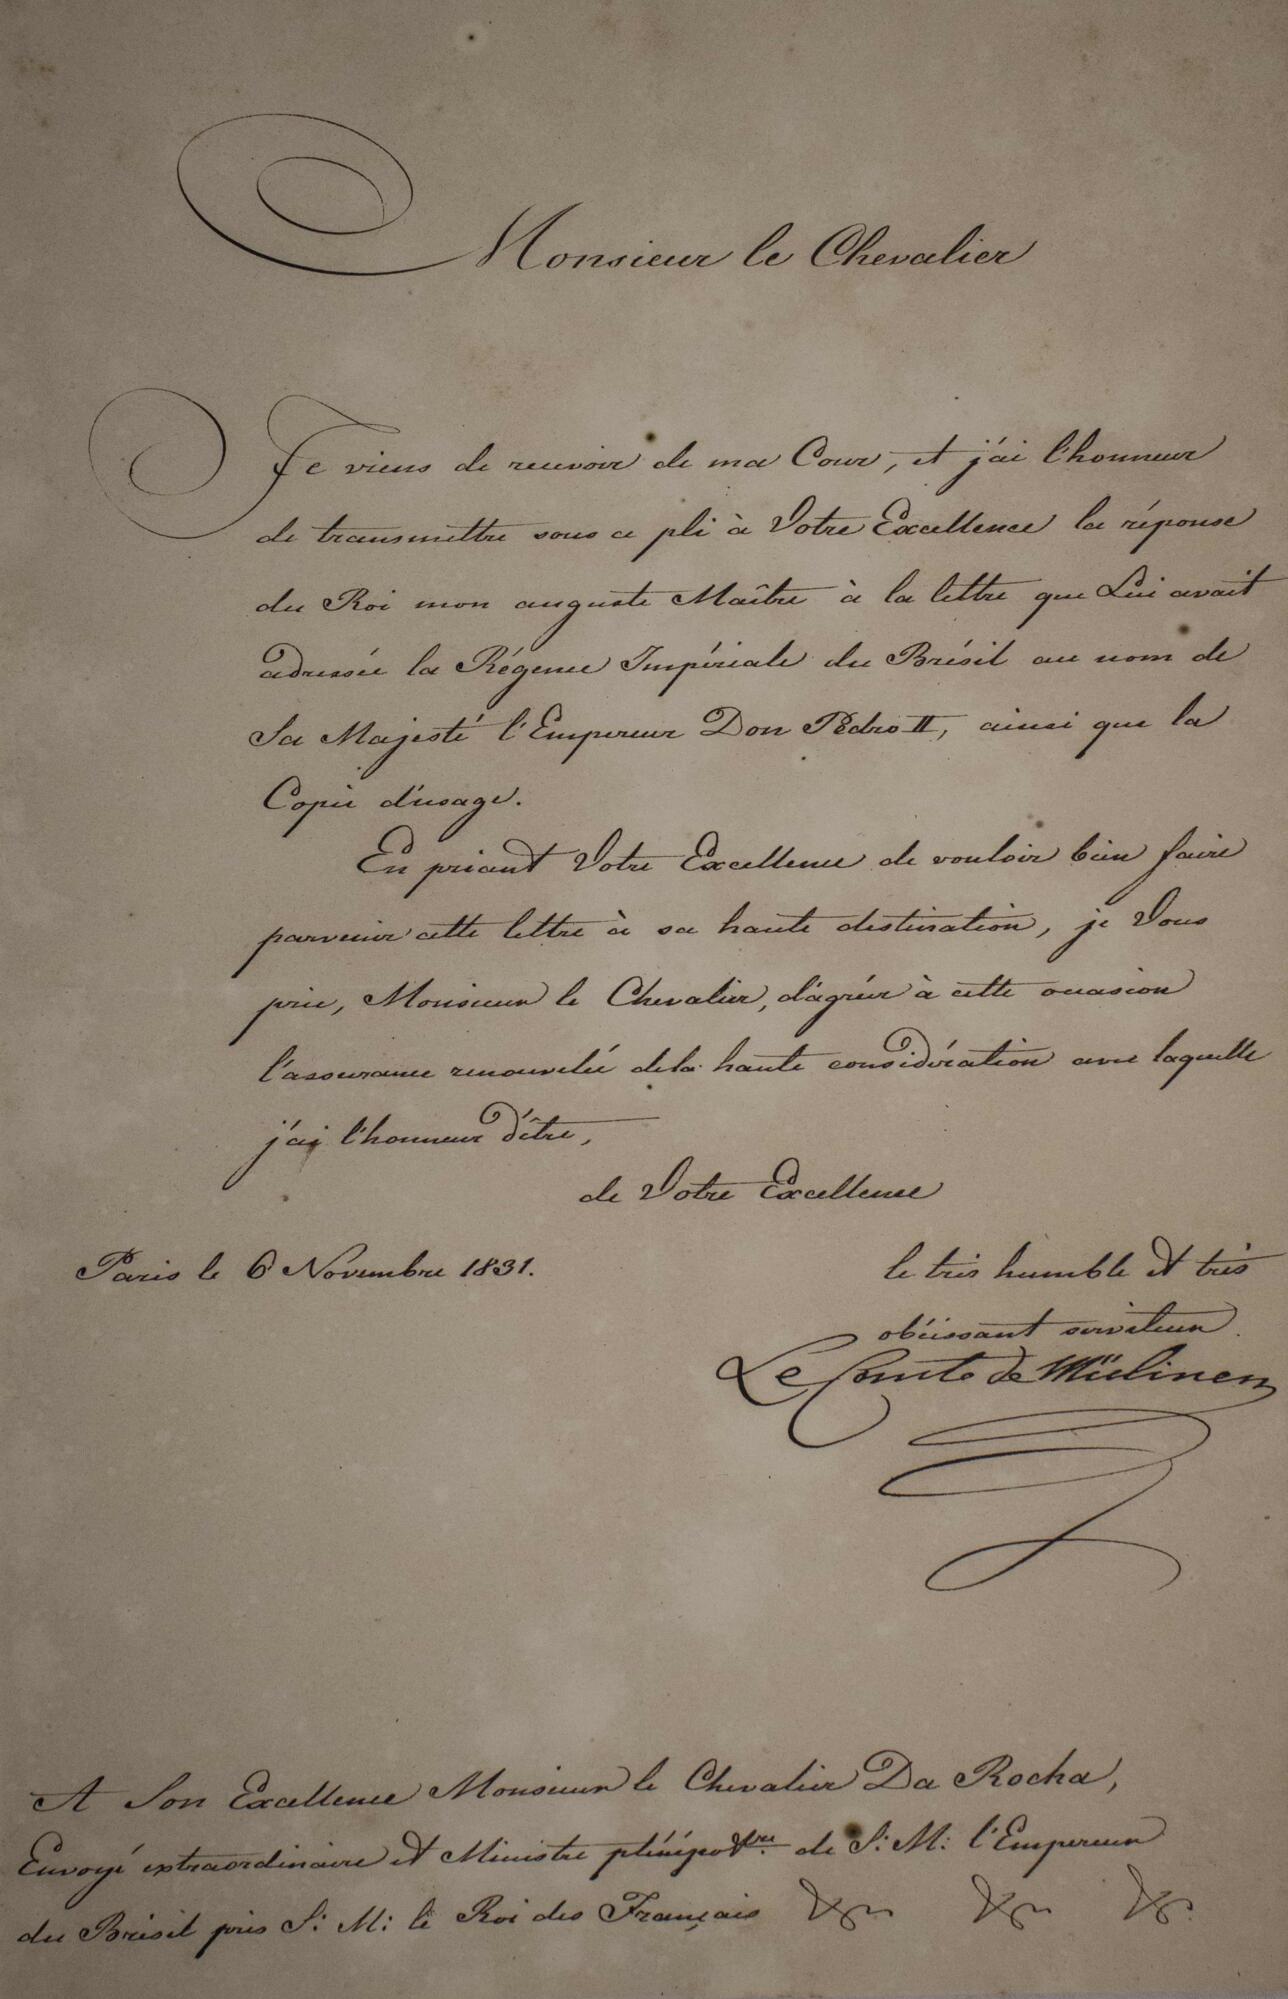 Monsieur le Chevalier
Je viens de recevoir de ma Cour, et j'ai l'honneur
de transmettre sous ce pli à Votre Excellence la réponse
du Roi mon auguste Maître à la lettre que Lui avait
adressée la Régence Impériale du Brésil au nom de
Sa Majesté l'Empereur Don Pédro II, ainsi que la
Copie d'usage.
En priant Votre Excellence de vouloir bien faire
parvenir cette lettre à sa haute destination, je Vous
prie, Monsieur le Chevalier, d'agréer à cette occasion
l'assurance renouvelée de la haute considération avec laquelle
j'ai l'honneur d'être,
de Votre Excellence
Paris le 6 Novembre 1831.
le très humble et très
obéissant serviteur.
Le Comte de Mülinen
A Son Excellence Monsieur le Chevalier Da Rocha,
Envoyé extraordinaire et Ministre plénipotre. de S: M: l'Empereur
du Brésil près S: M: le Roi des Français